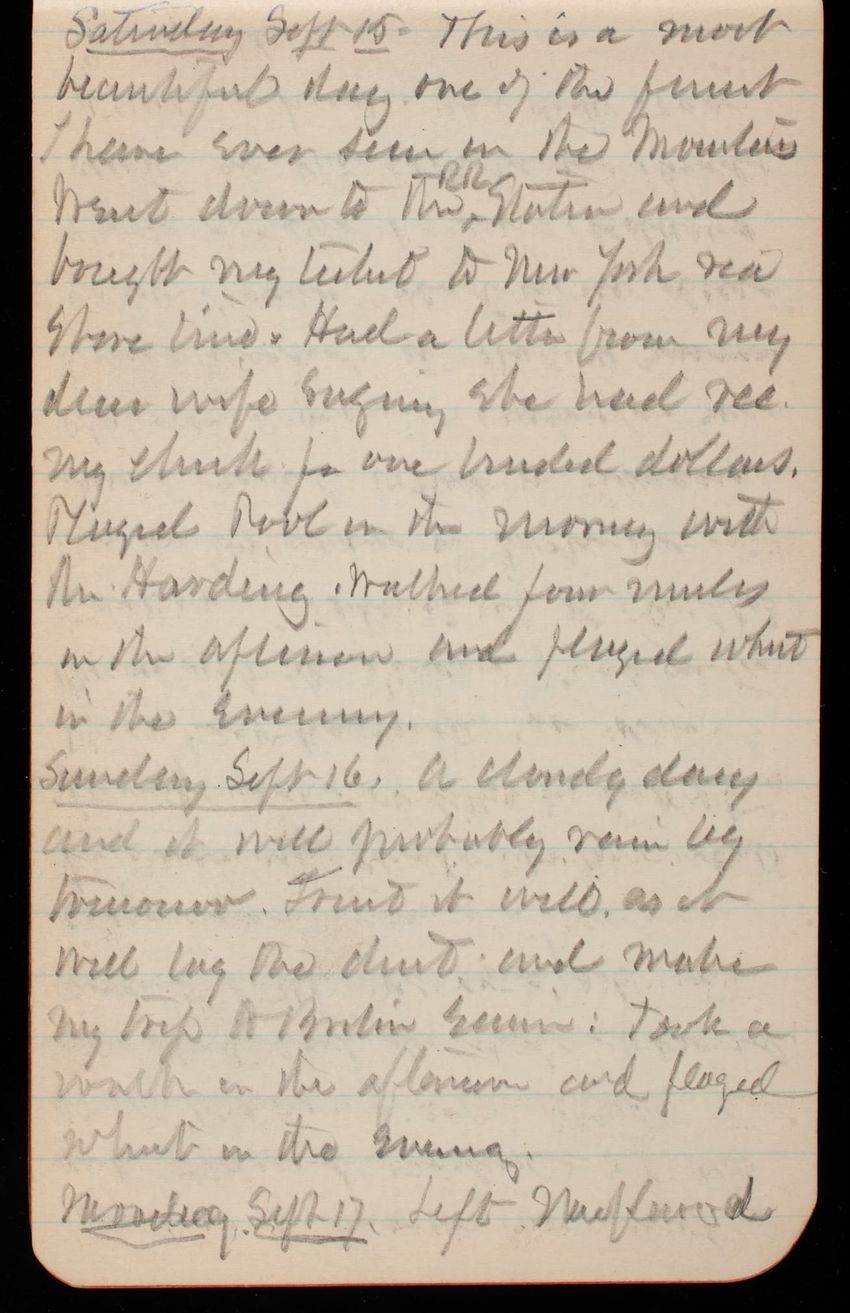 Saturday Sept 15. This is a most
beautiful day one of the finest
I have ever seen in the Mountains
Went down to the RR Station and
bought my ticket to New York via
Shore line. Had a letter from my
dear wife saying she had rec.
my check for one hundred dollars.
Played Pool in the morning with
the Harding. Walked four miles
in the afternoon and played whist
in the evening.
Sunday Sept 16. A cloudy day
and it will probably rain by
tomorrow. Trust it will. as it
will lay the dust and make
my trip to Boston easier: Took a
walk in the afternoon and played
whist in the evening.
Monday. Sept 17. Left